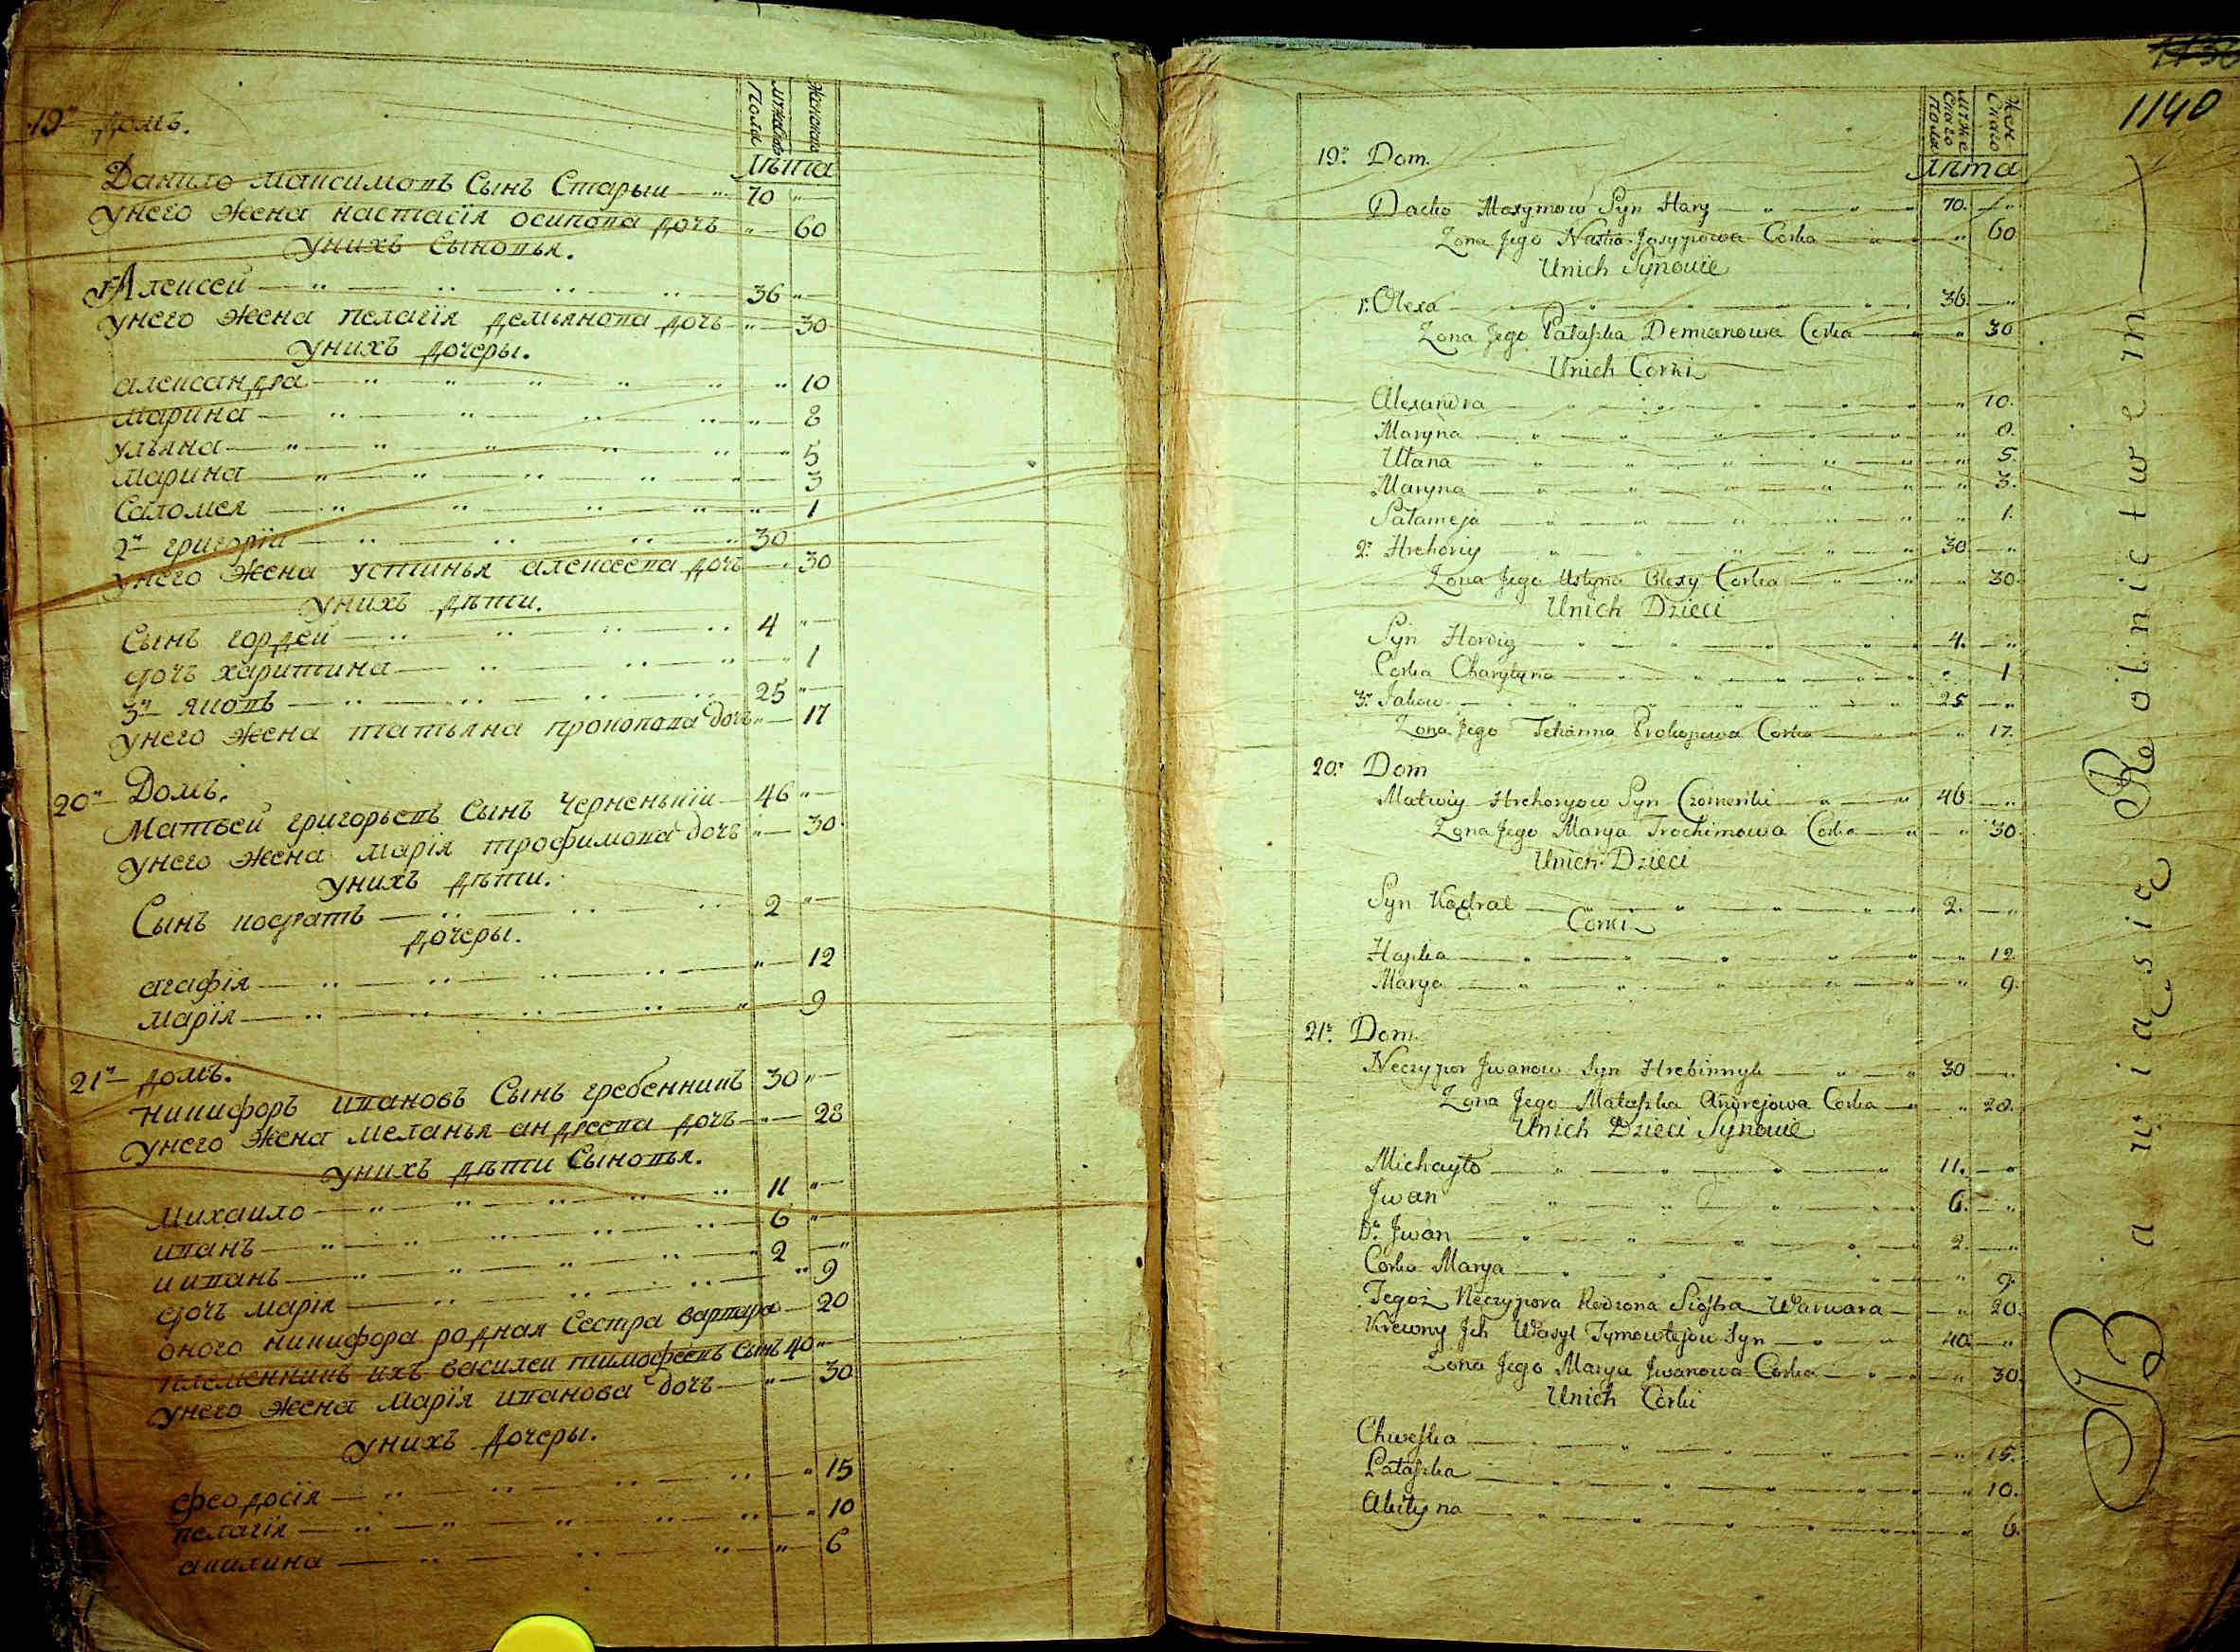 Мужеска Пола
Женска
Лѣта
19й домъ.
Данило Максимовъ Сынъ Старыи 70
унего жена настасія осипова дочь 60
унихъ Сыновья.
1й Алексей 36
унего жена пелагія демьянова дочь 30
унихъ дочеры.
александра 10
марина 8
ульяна 5
марина 3
Саломея 1
2й григорій 30
унего жена устинья алексеева дочь 30
унихъ дѣти.
Сынъ гордей 4
дочь харитина 1
3й яковъ 25
унего жена татьяна прокопова дочь 17
20й Домъ.
Матвей григорьевъ Сынъ Черненькій 46
унего жена марія трофимова дочь 30
унихъ дѣти.
Сынъ кодратъ 2
дочеры.
агафія 12
марія 9
21й домъ.
никифоръ ивановъ Сынъ гребенникъ 30
унего жена меланья андреева дочь 28
унихъ дѣти Сыновья.
михаило 11
иванъ 6
и иванъ 2
дочь марія 9
оного никифора родная Сестра варвара 20
племенникъ ихъ василеи тимофеевъ Сынъ 40
унего жена марія иванова дочь 30
унихъ дочеры.
феодосія 15
пелагія 10
акилина 6
1140
Муже Скаго Пола
Жен Скаго
Лѣта
19. Dom.
Dacko Maxymow Syn Stary 70.
Zona Jego Nastia Josypowa Corka 60
Unich Synowie
1. Olexa 36.
Zona Jego Pałaszka Demianowa Corka 30
Unich Corki
Alexandra 10.
Maryna 8.
Ułana 5.
Maryna 3.
Sałameja 1.
2. Hrehoriy 30.
Zona Jego Ustyna Olexy Corka 30.
Unich Dzieci
Syn Hordiy 4.
Corka Charytyna 1
3. Jakow 25
Zona Jego Tehanna Prokopowa Corka 17.
20. Dom
Matwiy Hrehoryow Syn Czornenki 46.
Zona Jego Marya Trochimowa Corka 30.
Unich Dzieci
Syn Kądrat 2.
Corki
Hapka 12.
Marya 9.
21. Dom.
Neczypor Jwanow Syn Hrebinnyk 30
Zona Jego Małaszka Andrejowa Corka 28.
Unich Dzieci Synowie
Michayło 11.
Jwan 6.
Do Jwan 2.
Corka Marya 9.
Tegoż Neczypora Rodzona Siostra Warwara 20.
Krewny Jch Wasyl Tymowtejow Syn 40.
Zona Jego Marya Jwanowa Corka 30.
Unich Corki
Chweska 15.
Pałaszka 10.
Akityna 6.